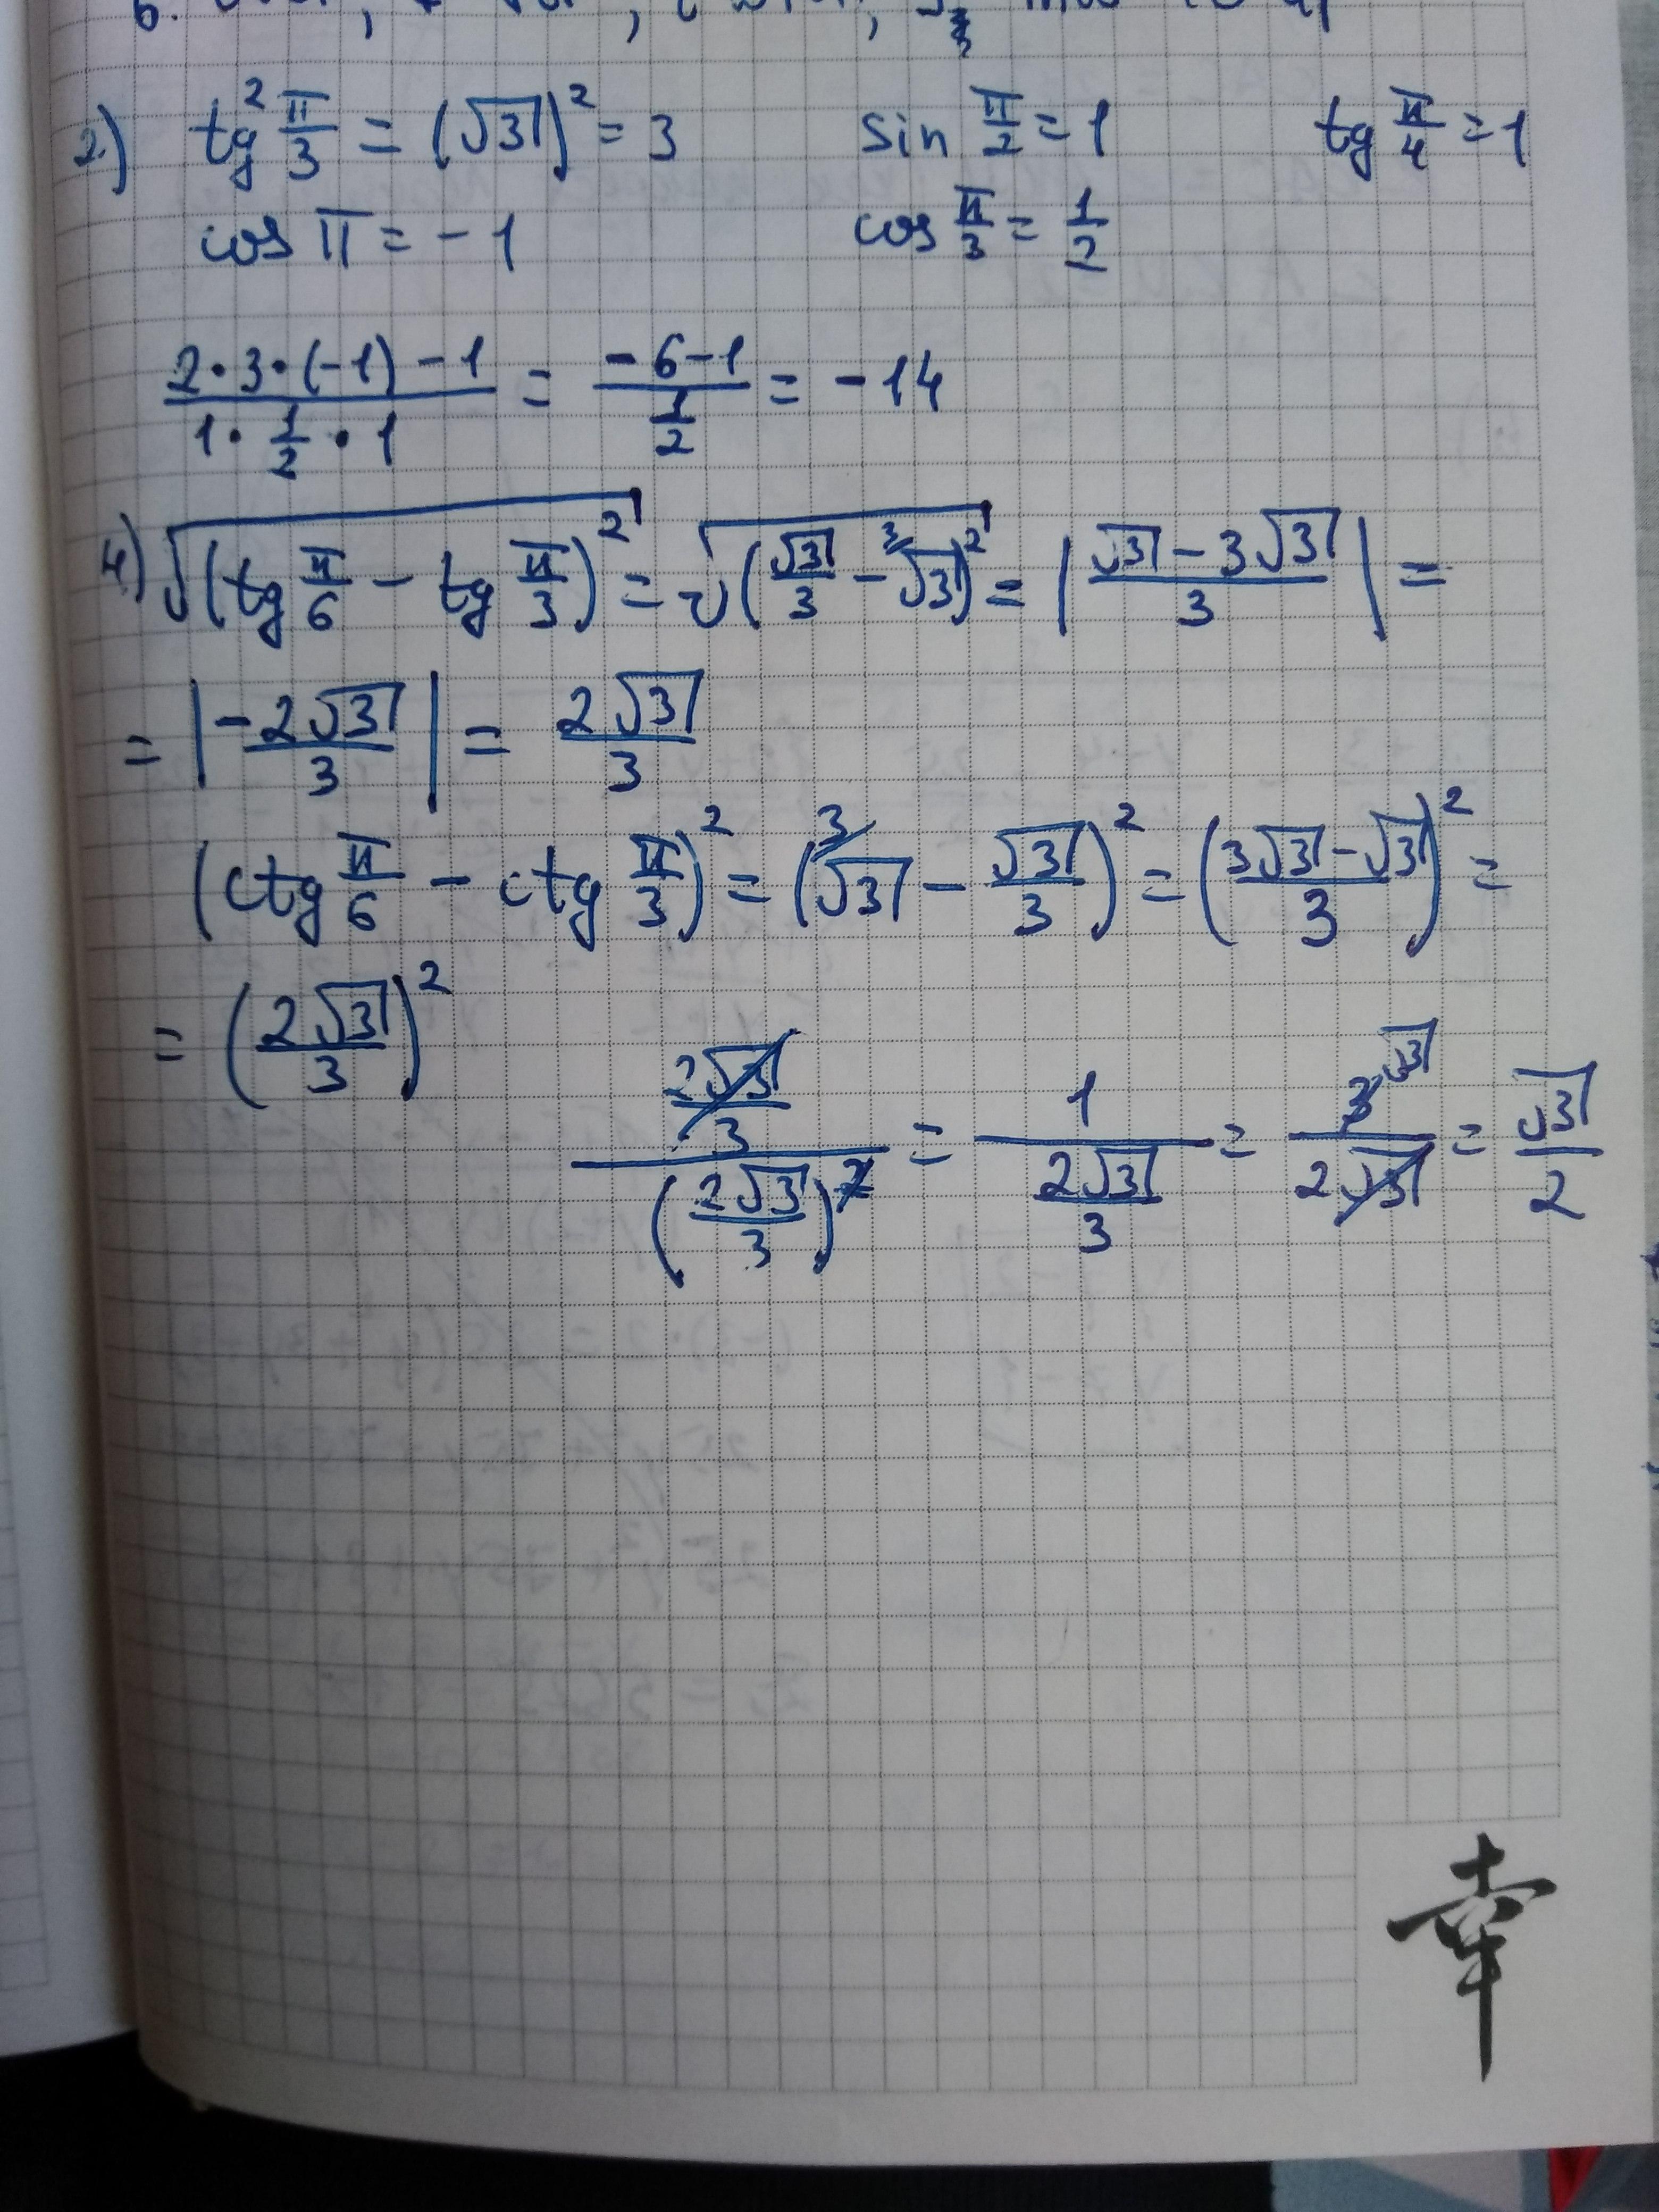 2.) tg² π/3 = (√3)² = 3 sin π/2 = 1 tg π/4 = 1
cos π = -1 cos π/3 = 1/2
(2·3·(-1) - 1)/(1·1/2·1) = (-6-1)/(1/2) = -14
4) √(tg π/6 - tg π/3)² = √(√3/3 - ³√3)² = |(√3 - 3√3)/3| =
= |-2√3/3| = 2√3/3
(ctg π/6 - ctg π/3)² = (³√3 - √3/3)² = ((3√3 - √3)/3)² =
= (2√3/3)²
(2√3/3)/(2√3/3)² = 1/(2√3/3) = 3 √3/(2√3) = √3/2
幸